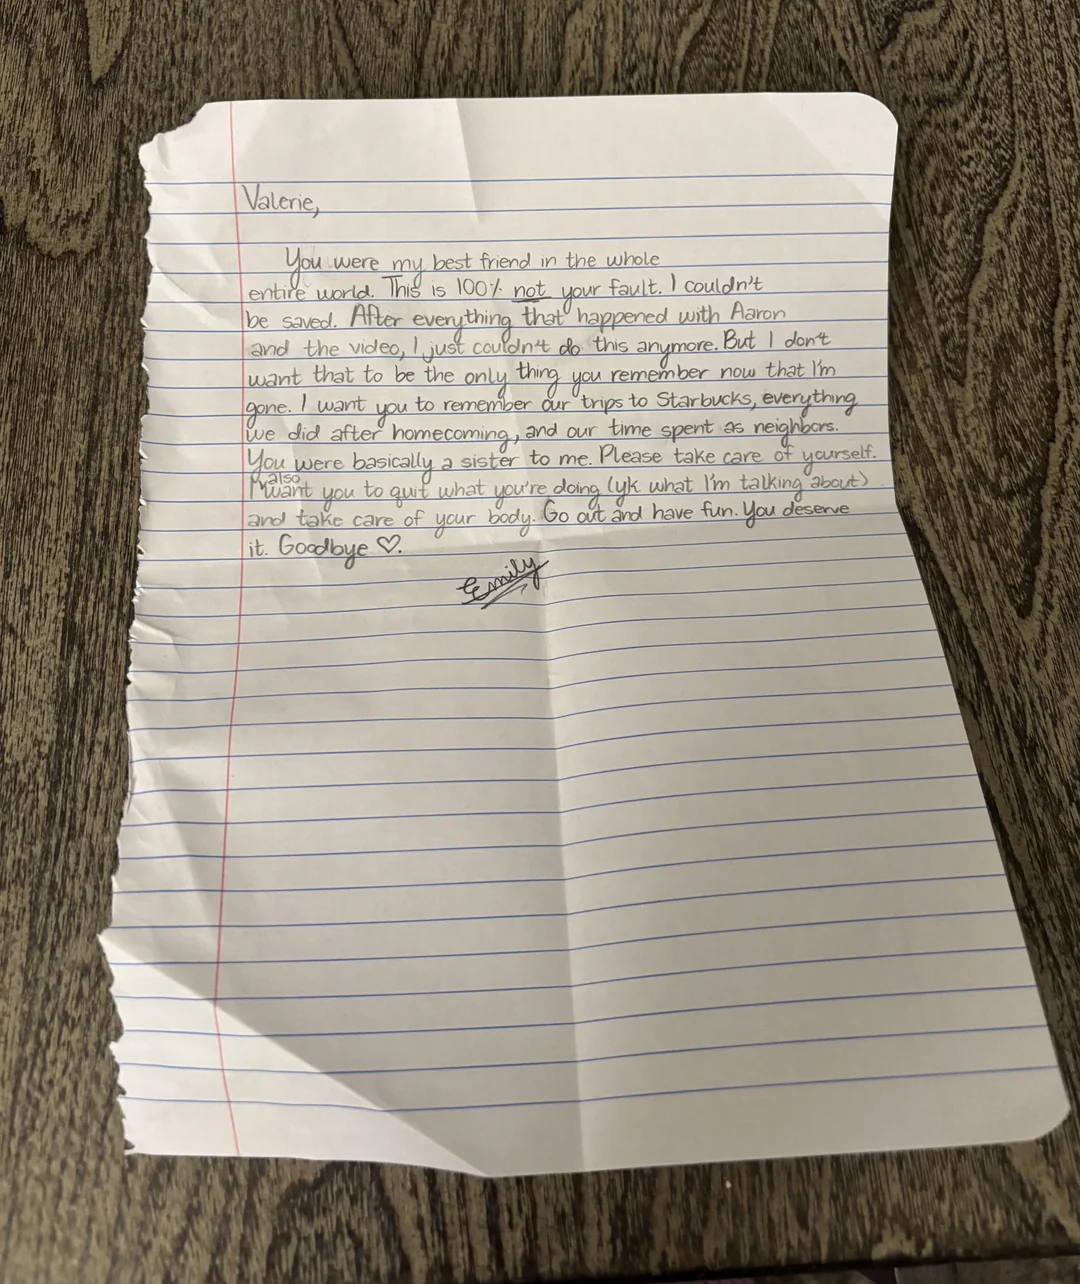 Valerie,
You were my best friend in the whole
entire world. This is 100% not your fault. I couldn't
be saved. After everything that happened with Aaron
and the video, I just couldn't do this anymore. But I don't
want that to be the only thing you remember now that I'm
gone. I want you to remember our trips to Starbucks, everything
we did after homecoming, and our time spent as neighbors.
You were basically a sister to me. Please take care of yourself.
I also want you to quit what you're doing (yk what I'm talking about)
and take care of your body. Go out and have fun. You deserve
it. Goodbye ♡.
Emily